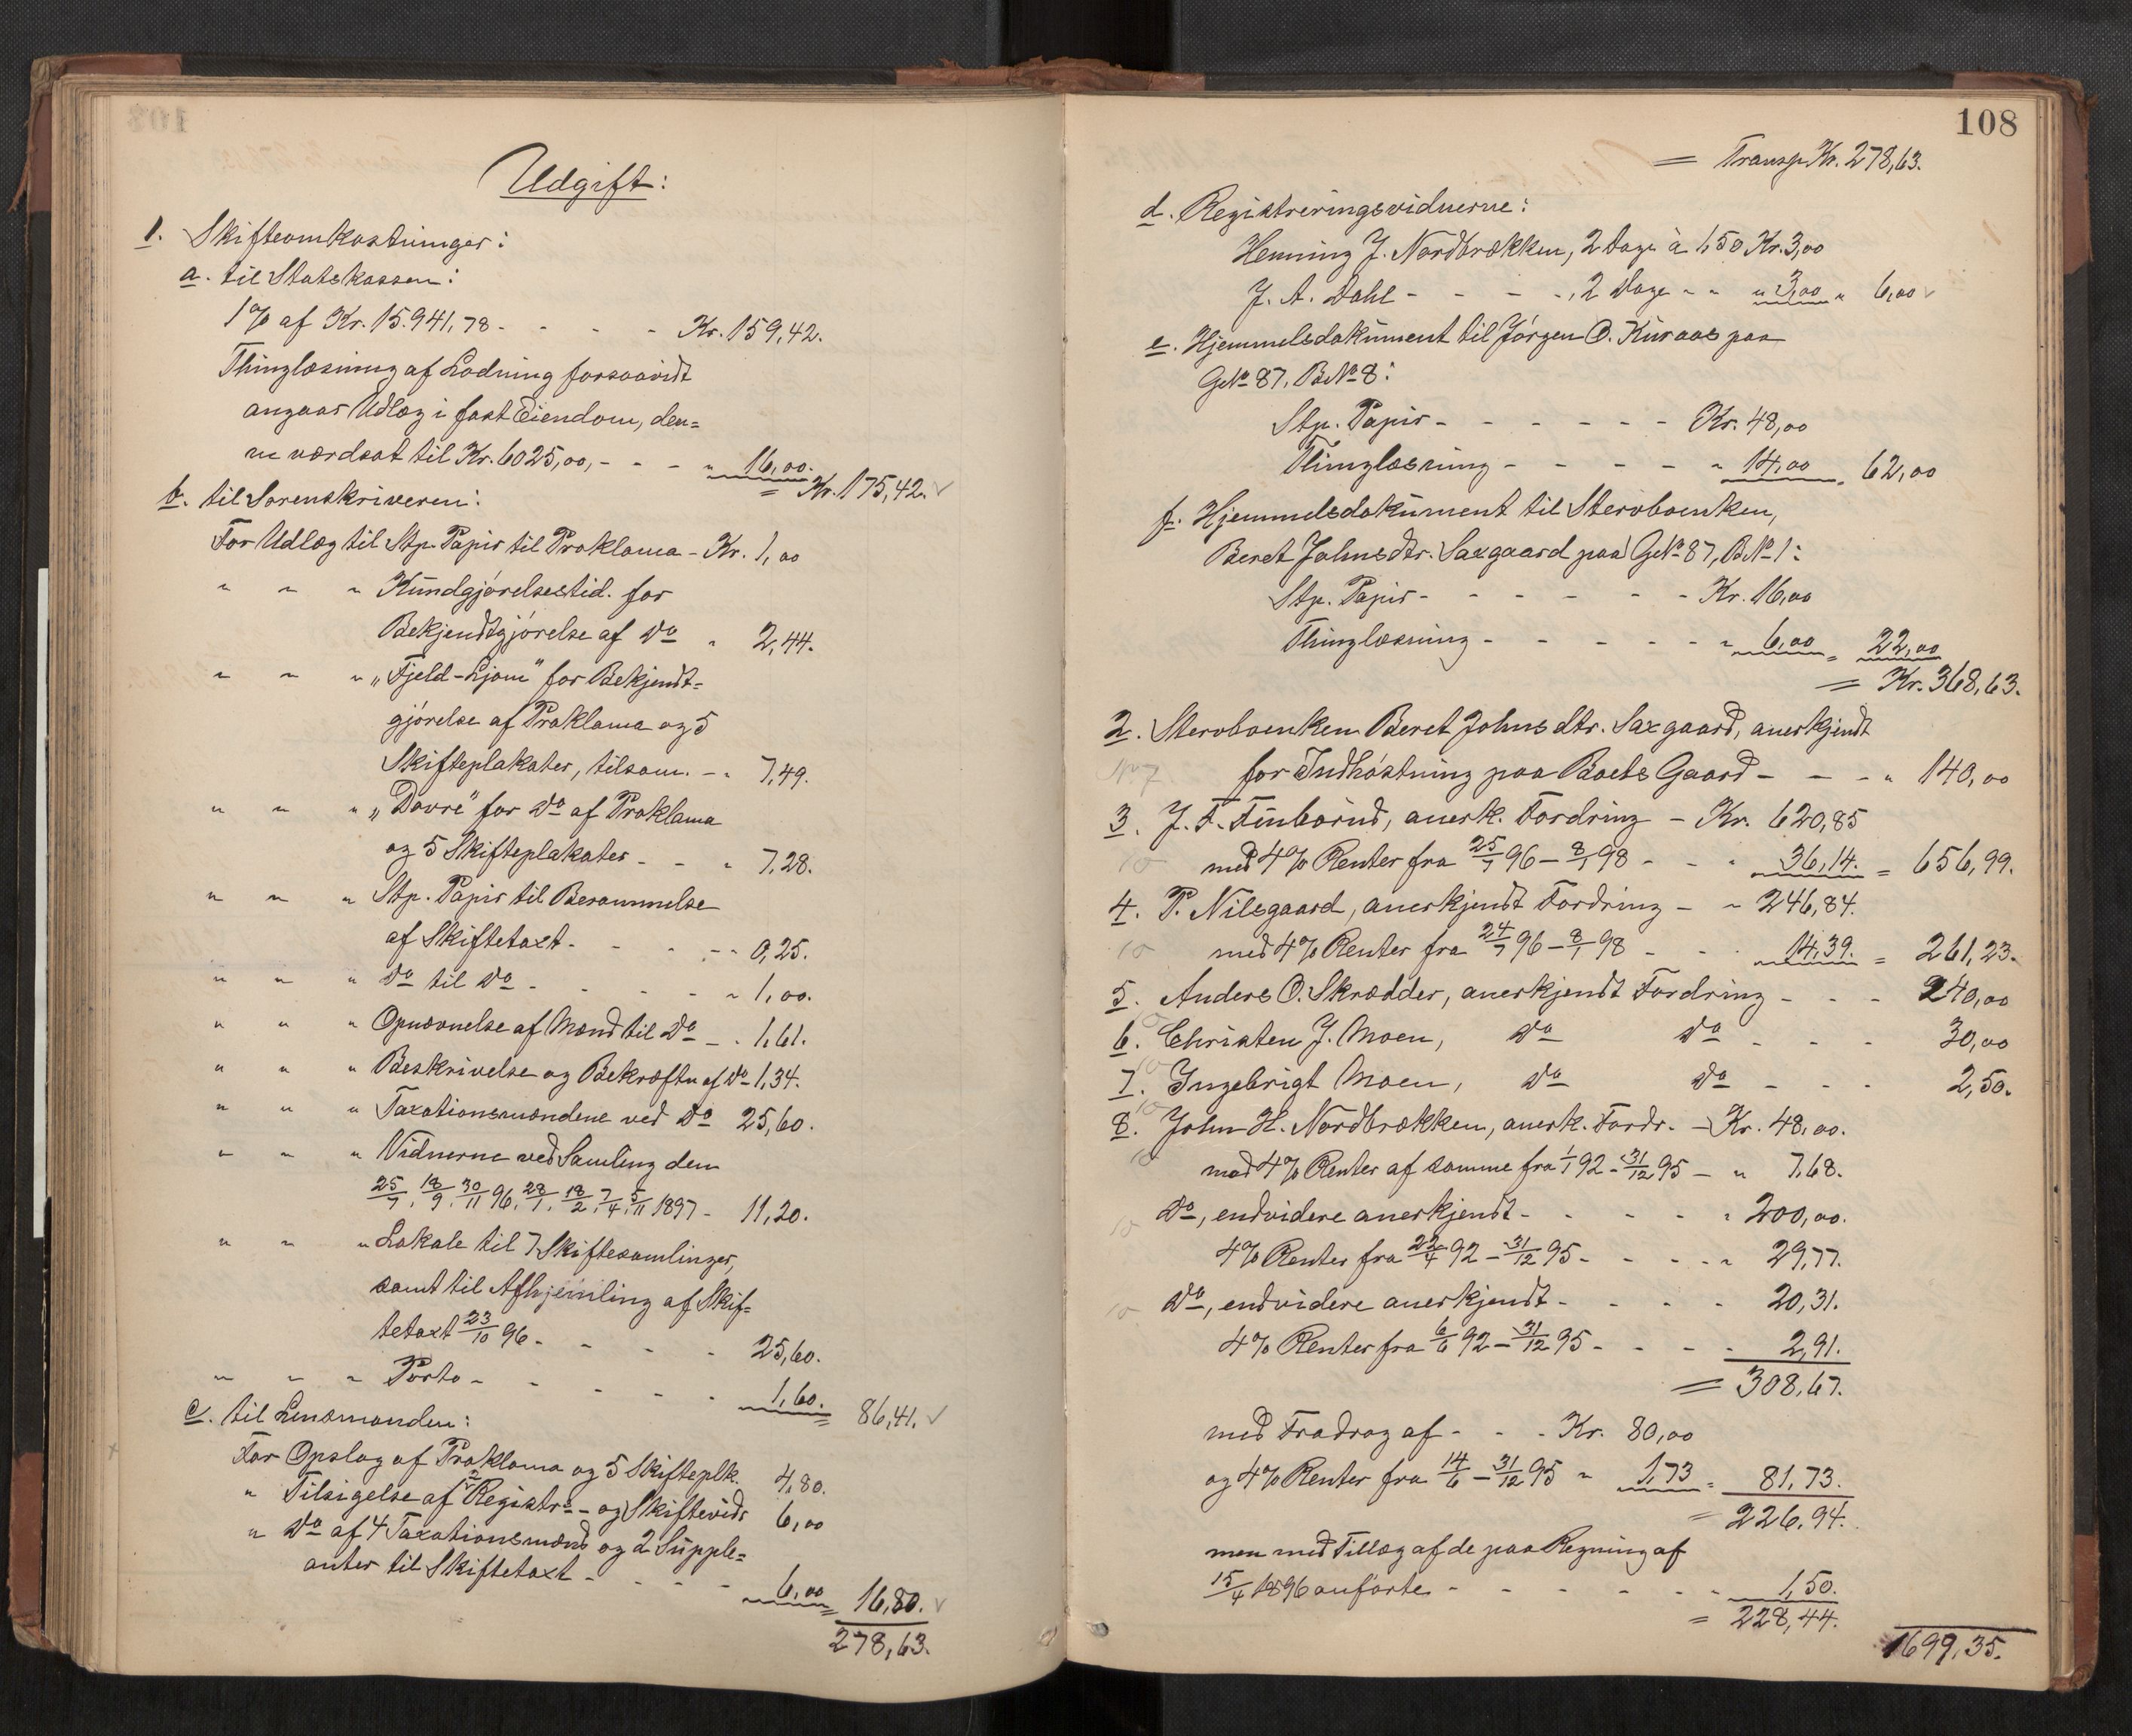 Udgift:
1. Skifteomkostninger:
a. til Statskassen:
1% af Kr. 15.941,78 - - - - Kr. 159,42.
Thinglæsning af Lodning forsaavidt
angaar Udlæg i fast Eiendom, den=
ne værdsat til Kr. 6025,00, - - - " 16,00.
= Kr. 175,42. ✓
b. til Sorenskriveren:
For Udlæg til Stp. Papir til Proklama - Kr. 1,00
" " " Kundgjørelsestid. for
Bekjendtgjørelse af Do " 2,44.
" " " „Fjeld-Ljom" for Bekjendt=
gjørelse af Proklama og 5
Skifteplakater, tilsam. - " 7,49.
" " " „Dovre" for Do af Proklama
og 5 Skifteplakater - - " 7,28.
" " " Stp. Papir til Berammelse
af Skiftetaxt - - - - " 0,25.
" " " Do til Do - - - - " 1,00.
" " " Opnævnelse af Mænd til Do - " 1,61.
" " " Beskrivelse og Bekræftn af Do 1,34.
" " " Taxationsmændene ved Do 25,60.
" " " Vidnerne ved Samling den
25/7, 18/9, 30/11 96, 28/1, 18/2, 7/4, 5/11 1897 - 11,20.
" " " Lokale til 7 Skiftesamlinger,
samt til Afhjemling af Skif=
tetaxt 23/10 96 - - - - 25,60.
" " " Porto - - - - - 1,60. = 86,41. ✓
c. til Lensmanden:
For Opslag af Proklama og 5 Skifteplk. 4,80.
" Tilsigelse af 2 Registr.- og Skiftevidr 6,00
" Do af 4 Taxationsmænd og 2 Supple=
anter til Skiftetaxt - - - - 6,00 = 16,80. ✓
278,63.
108
= Transp. Kr. 278,63.
d. Registreringsvidnerne:
Henning J. Nordbrækken, 2 Dage à 1,50 Kr. 3,00
J. A. Dahl - - - -, 2 Dage " " " 3,00 " 6,00 ✓
e. Hjemmelsdokument til Jørgen O. Kuraas paa
GNo 87, BNo 8:
Stp. Papir - - - - - - Kr. 48,00
Thinglæsning - - - - - " 14,00 " 62,00
f. Hjemmelsdokument til Stervboenken,
Beret Johnsdtr. Saxgaard paa GNo 87, BNo 1:
Stp. Papir - - - - - - Kr. 16,00
Thinglæsning - - - - - " 6,00 = 22,00
= Kr. 368,63.
2. Stervboenken Beret Johnsdtr. Saxgaard, anerkjendt
for Indhøstning paa Boets Gaard - - - " 140,00
3. J. F. Finborud, anerk. Fordring - Kr. 620,85
med 4% Renter fra 25/7 96 - 8/1 98 - - " 36,14. = 656,99.
4. P. Nilsgaard, anerkjendt Fordring - " 246,84.
med 4% Renter fra 24/7 96 - 8/1 98 - - 14,39. = 261,23.
5. Anders O. Skrædder, anerkjendt Fordring - - - 240,00
6. Christen J. Moen, Do Do - - - 30,00
7. Ingebrigt Moen, Do Do - - - 2,50.
8. John H. Nordbrækken, anerk. Fordr. - Kr. 48,00.
med 4% Renter af samme fra 1/1 92 - 31/12 95 - " 7,68.
Do, endvidere anerkjendt - - - - " 200,00.
4% Renter fra 22/4 92 - 31/12 95 - - - - " 29,77.
Do, endvidere anerkjendt - - - - 20,31.
4% Renter fra 6/6 92 - 31/12 95 - - - - 2,91.
= 308,67.
med Fradrag af - - - Kr. 80,00
og 4% Renter fra 14/6 - 31/12 95 " 1,73 = 81,73.
= 226,94.
men med Tillæg af de paa Regning af
15/4 1896 anførte - - - - - - 1,50.
= 228,44.
1699,35.